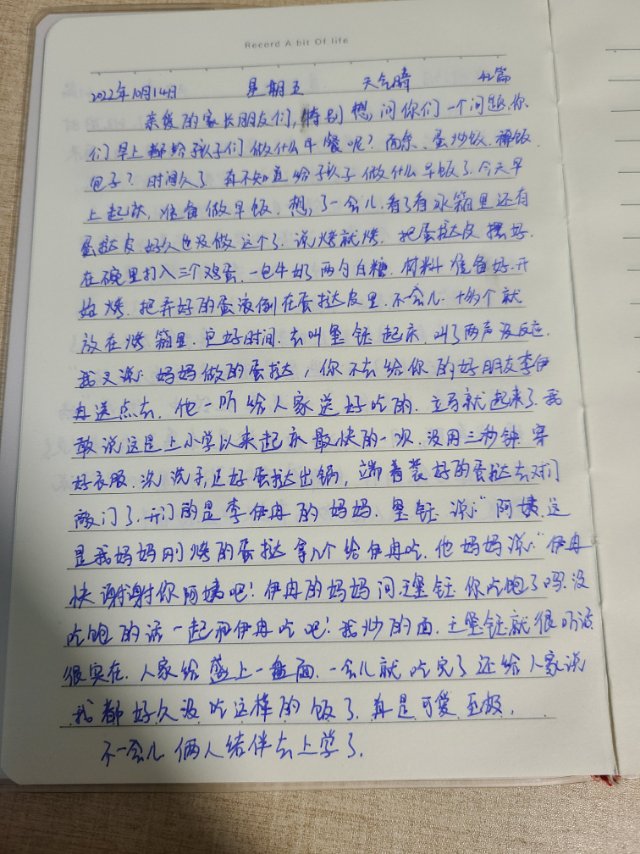 Record A bit Of life
2022年10月14日 星期五 天气晴 42篇
亲爱的家长朋友们,特别想问你们一个问题.你
们早上都给孩子们做什么早餐呢?面条、蛋炒饭、稀饭.
包子?时间久了 真不知道给孩子做什么早饭了.今天早
上起床,准备做早饭.想了一会儿.看了看冰箱里还有
蛋挞皮好久也没做这个了.说烤就烤.把蛋挞皮摆好.
在碗里打入三个鸡蛋.一包牛奶两勺白糖.材料准备好.开
始烤.把弄好的蛋液倒在蛋挞皮里.不一会儿.十多个就
放在烤箱里.定好时间.去叫垦钰起床,叫了两声没反应.
我又说:妈妈做的蛋挞,你不去给你的好朋友李伊
冉送点去,他一听给人家送好吃的.立马就起来了.我
敢说这是上小学以来起床最快的一次.没用三秒钟穿
好衣服.洗洗手正好蛋挞出锅,端着装好的蛋挞去对门
敲门了.开门的是李伊冉的妈妈.垦钰说:“阿姨.这
是我妈妈刚烤的蛋挞拿几个给伊冉吃.他妈妈说:“伊冉
快谢谢你阿姨吧!伊冉的妈妈问:王垦钰你吃饱了吗.没
吃饱的话一起和伊冉吃吧!我炒的面.王垦钰就很听话
很实在.人家给盛上一盘面.一会儿就吃完了还给人家说
我都好久没吃这样的饭了.真是可爱至极.
不一会儿俩人结伴去上学了.